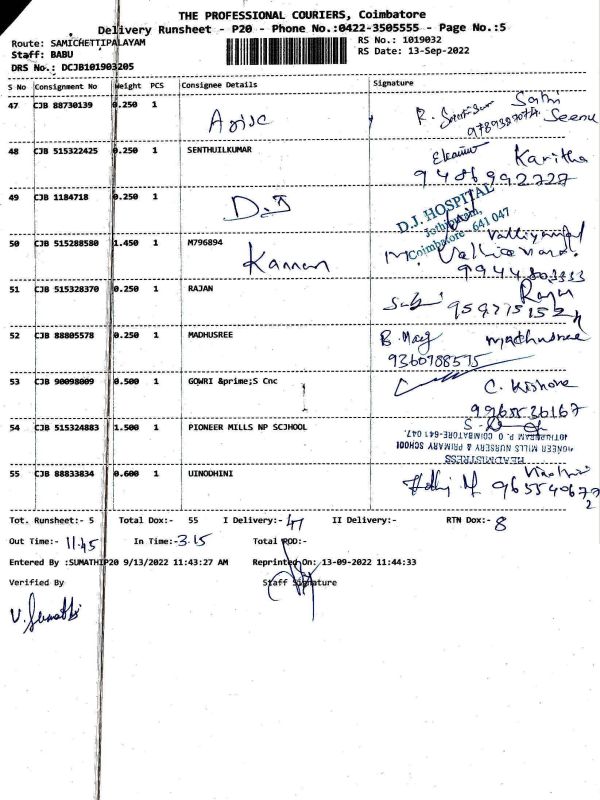 THE PROFESSIONAL COURIERS, Coimbatore
Delivery Runsheet - P20 - Phone No.:0422-3505555 - Page No.:5
Route: SAMICHETTIPALAYAM RS No.: 1019032
Staff: BABU RS Date: 13-Sep-2022
DRS No.: DCJB101903205
S No Consignment No Weight PCS Consignee Details Signature
47 CJB 88730139 0.250 1
48 CJB 515322425 0.250 1 SENTHUILKUMAR Kavitha
9486992727
49 CJB 1184718 0.250 1 D.J D.J. HOSPITAL
Jothipuram,
Coimbatore - 641 047
50 CJB 515288580 1.450 1 M796894 Kannan
51 CJB 515328370 0.250 1 RAJAN Rajan
52 CJB 88805578 0.250 1 MADHUSREE madhusree
9360788575
53 CJB 90098009 0.500 1 GOWRI &prime;S Cnc C. Kishore
9965536167
54 CJB 515324883 1.500 1 PIONEER MILLS NP SCJHOOL
JOTHIPURAM P. O COIMBATORE-641 047.
PIONEER MILLS NURSERY & PRIMARY SCHOOL
HEADMISTRESS
55 CJB 88833834 0.600 1 UINODHINI
Tot. Runsheet:- 5 Total Dox:- 55 I Delivery:- 47 II Delivery:- RTN Dox:- 8
Out Time:- 11.45 In Time:- 3.15 Total POD:-
Entered By :SUMATHIP20 9/13/2022 11:43:27 AM Reprinted On: 13-09-2022 11:44:33
Verified By Staff Signature
V. Sumathi